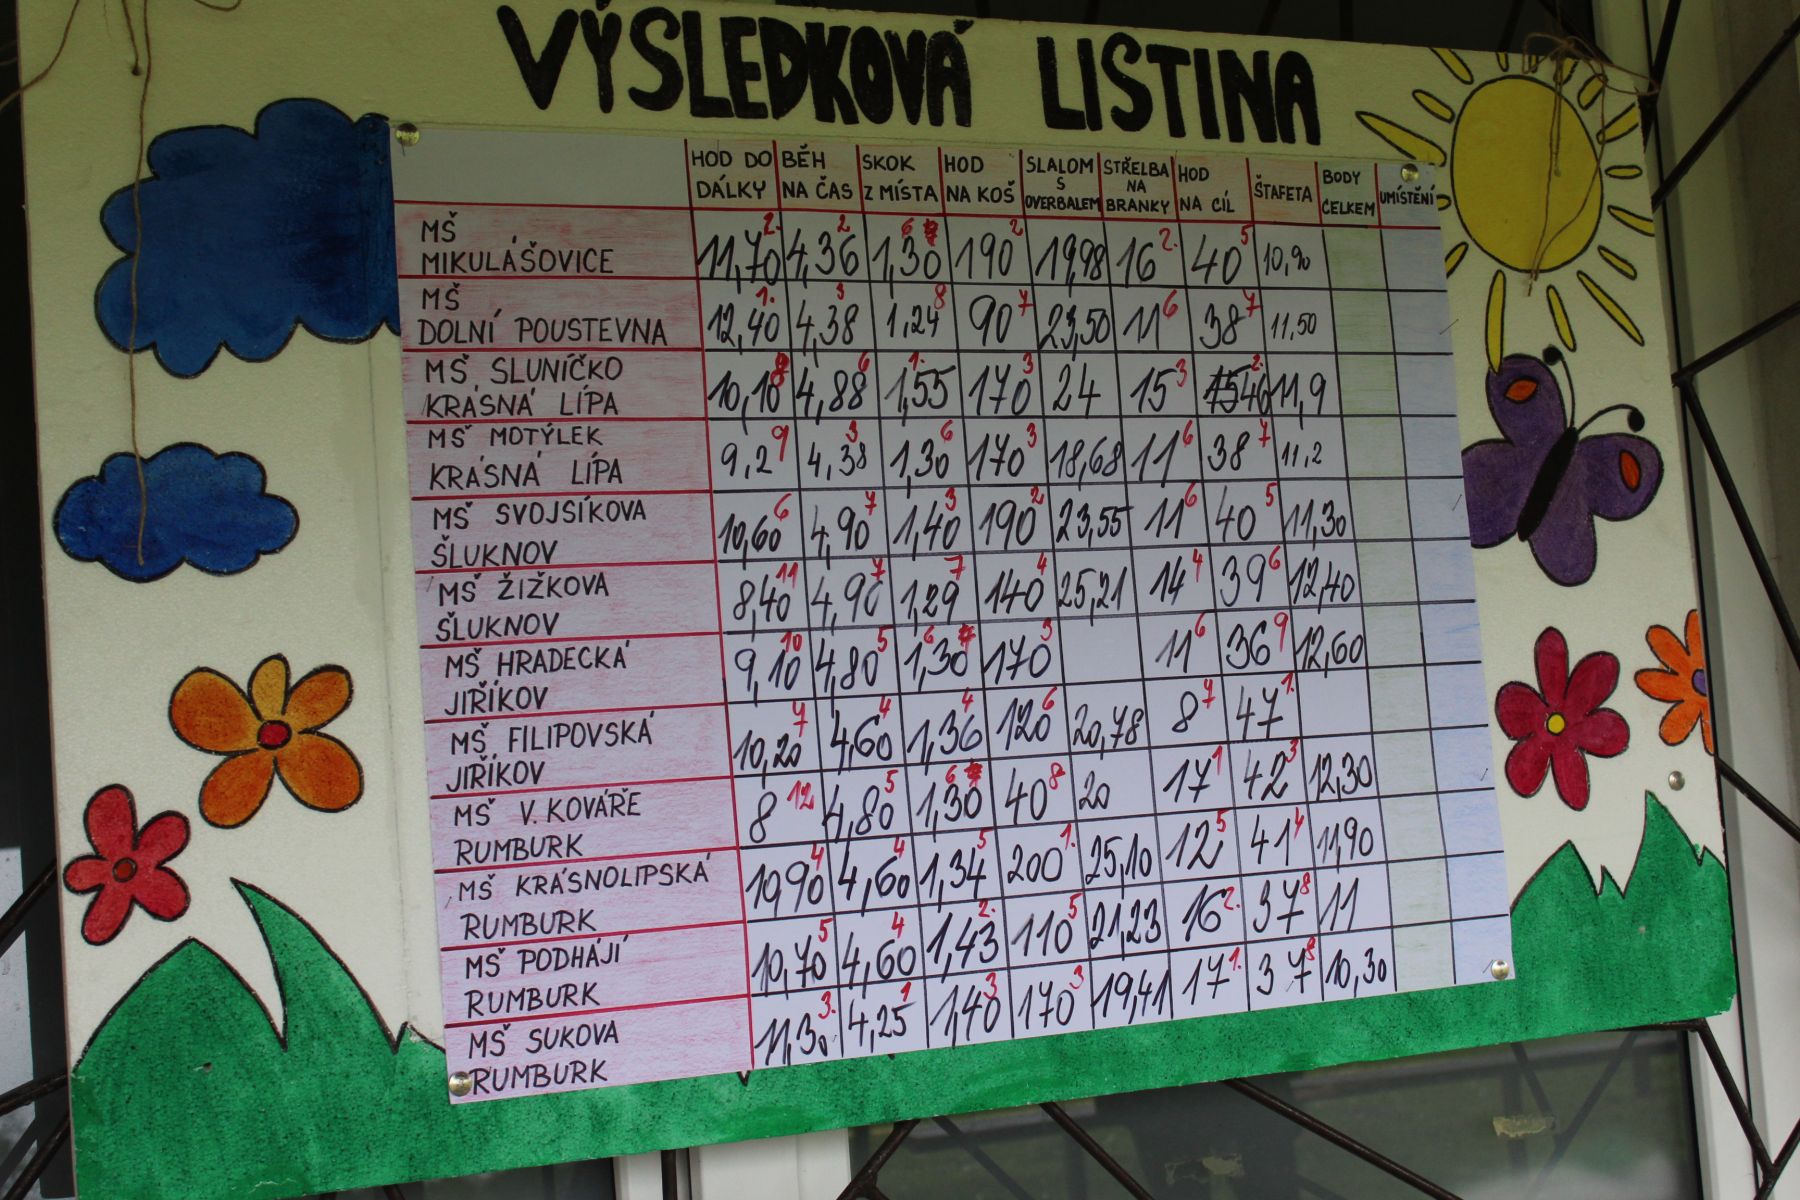 VÝSLEDKOVÁ LISTINA
HOD DO DÁLKY BĚH NA ČAS SKOK Z MÍSTA HOD NA KOŠ SLALOM S OVERBALEM STŘELBA NA BRANKY HOD NA CÍL ŠTAFETA BODY CELKEM UMÍSTĚNÍ
MŠ MIKULÁŠOVICE 11,70 2. 4,36 2 1,30 6 190 2 19,98 16 2. 40 5 10,90
MŠ DOLNÍ POUSTEVNA 12,40 1. 4,38 3 1,24 8 90 7 23,50 11 6 38 7 11,50
MŠ SLUNÍČKO KRÁSNÁ LÍPA 10,10 8 4,88 6 1,55 1. 170 3 24 15 3 46 2. 11,9
MŠ MOTÝLEK KRÁSNÁ LÍPA 9,2 9 4,38 3 1,30 6 170 3 18,68 11 6 38 7 11,2
MŠ SVOJSÍKOVA ŠLUKNOV 10,60 6 4,90 7 1,40 3 190 2 23,55 11 6 40 5 11,30
MŠ ŽIŽKOVA ŠLUKNOV 8,40 11 4,90 7 1,29 7 140 4 25,21 14 4 39 6 12,40
MŠ HRADECKÁ JIŘÍKOV 9,10 10 4,80 5 1,30 6 170 3 11 6 36 9 12,60
MŠ FILIPOVSKÁ JIŘÍKOV 10,20 7 4,60 4 1,36 4 120 6 20,78 8 7 47 1.
MŠ V. KOVÁŘE RUMBURK 8 12 4,80 5 1,30 6 40 8 20 17 1 42 3 12,30
MŠ KRÁSNOLIPSKÁ RUMBURK 10,90 4 4,60 4 1,34 5 200 1. 25,10 12 5 41 4 11,90
MŠ PODHÁJÍ RUMBURK 10,70 5 4,60 4 1,43 2. 110 5 21,23 16 2. 37 8 11
MŠ SUKOVA RUMBURK 11,30 3. 4,25 1 1,40 3 170 3 19,41 17 1. 37 8 10,30